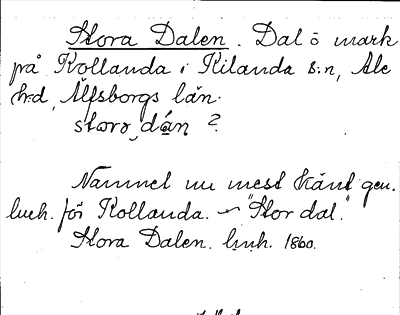 Stora Dalen. Dal ō mark
på Kollanda i Kilanda s:n, Ale
h:d, Älfsborgs län.
storo dán ?
Namnet nu mest känt gen.
lmh. för Kollanda. – "Stor dal."
Stora Dalen. lmh. 1860.